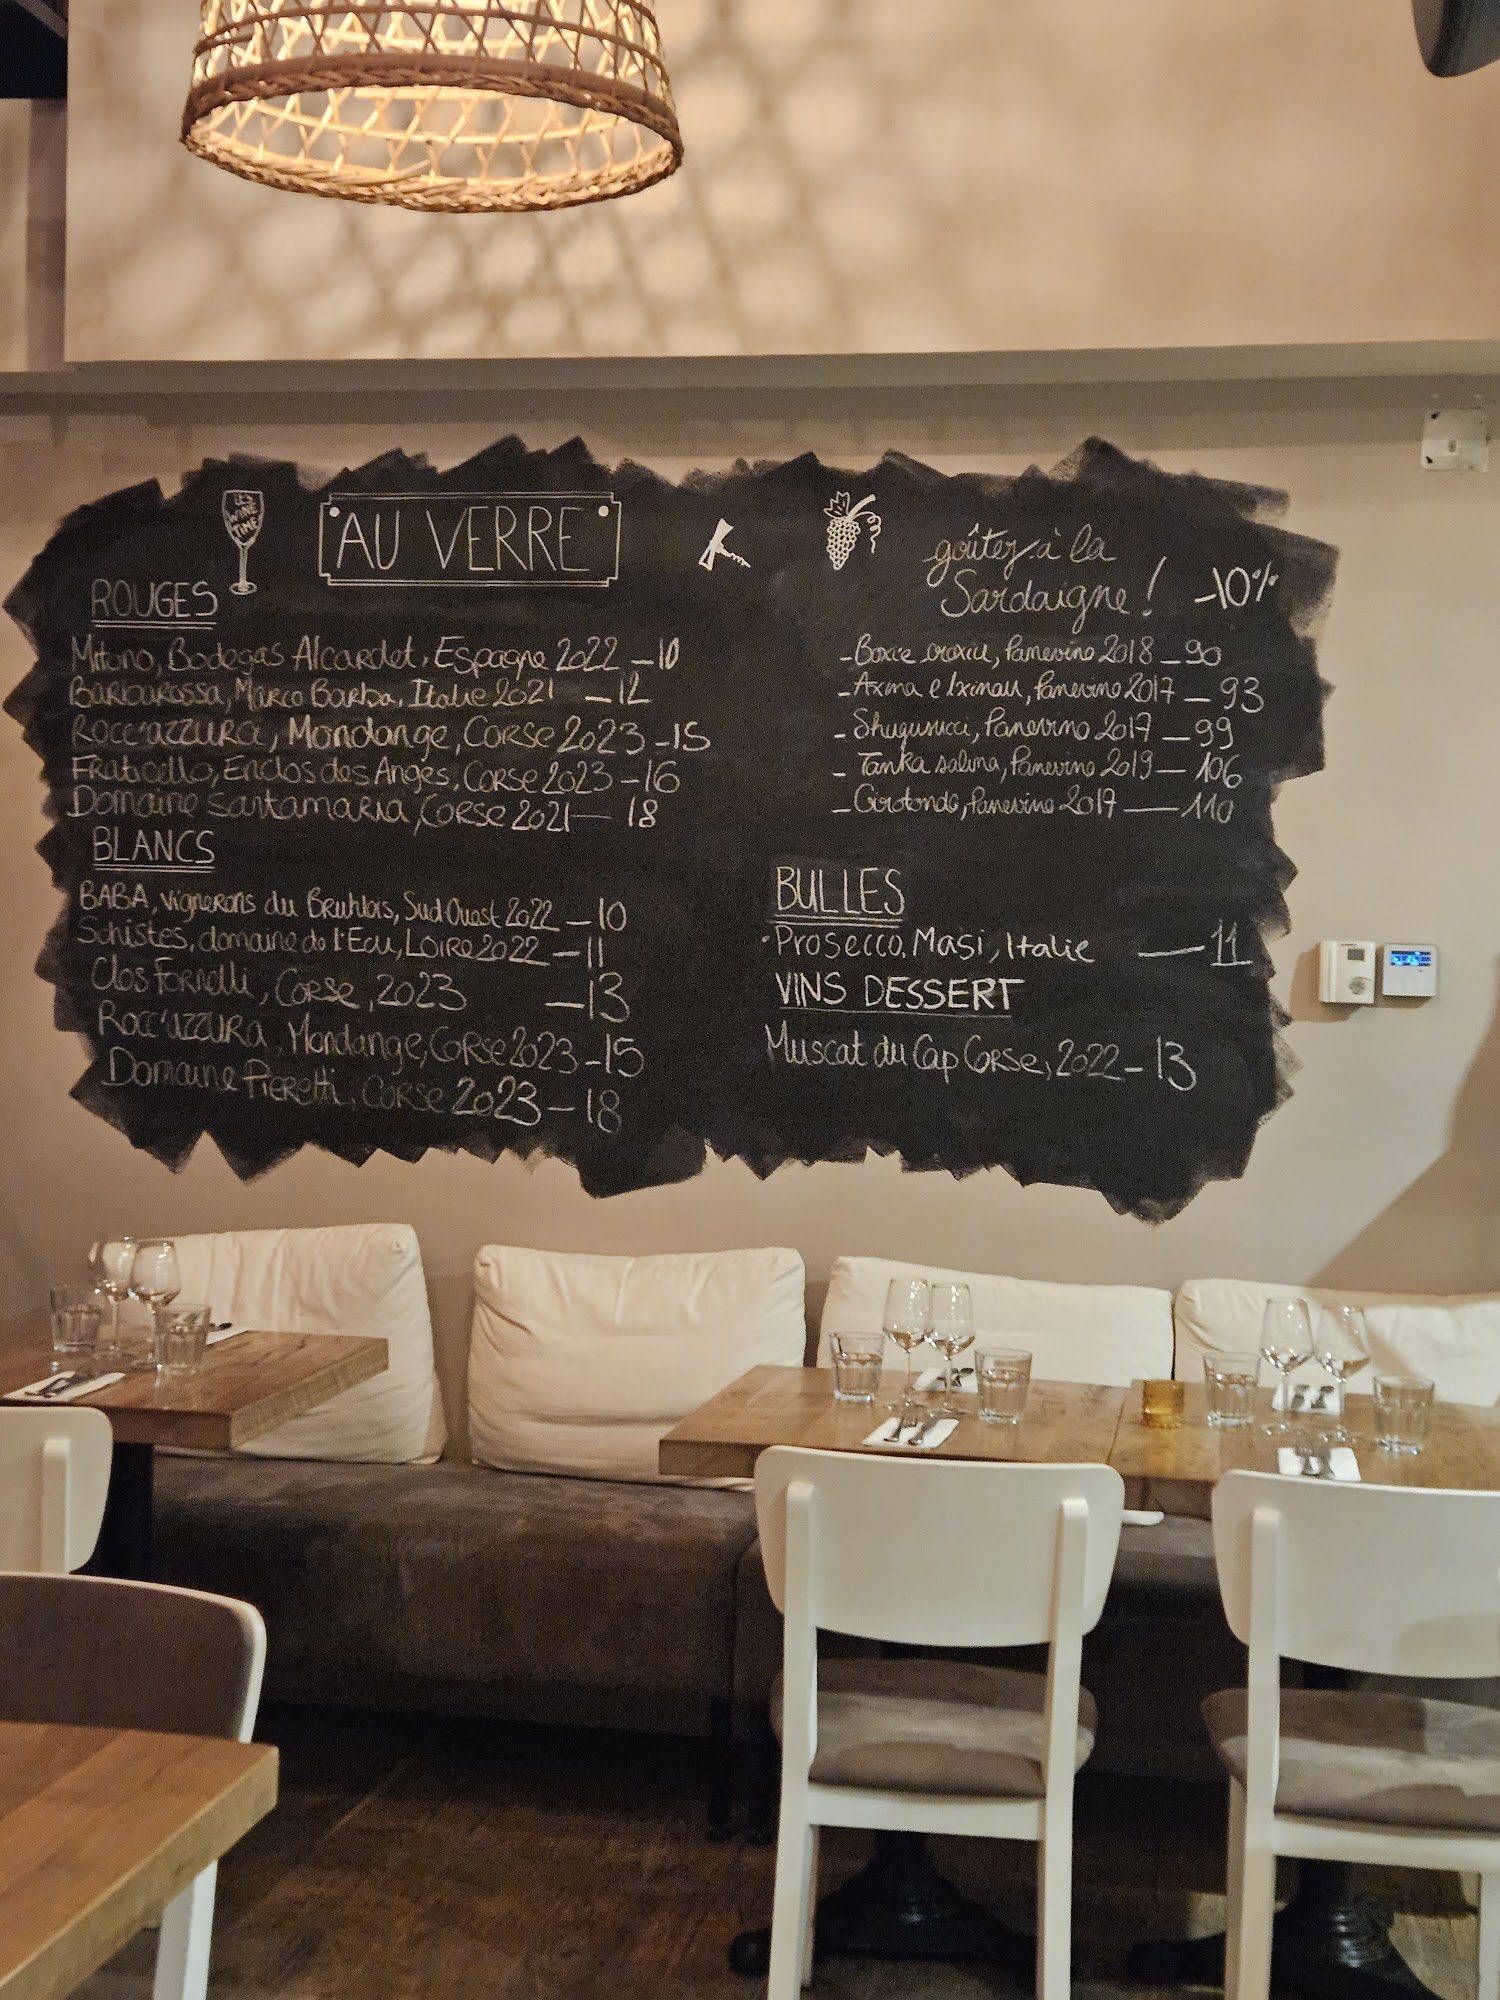 IT'S
WINE
TIME
AU VERRE
ROUGES
Mitono, Bodegas Alcardet, Espagne 2022 — 10
Barbarossa, Marco Barba, Italie 2021 — 12
Rocc'azzura, Mondange, Corse 2023 — 15
Fraticello, Enclos des Anges, Corse 2023 — 16
Domaine Santamaria, Corse 2021 — 18
BLANCS
BABA, Vignerons du Bruhlois, Sud Ouest 2022 — 10
Schistes, domaine de l'Ecu, Loire 2022 — 11
Clos Fornelli, Corse, 2023 — 13
Rocc'azzura, Mondange, Corse 2023 — 15
Domaine Pieretti, Corse 2023 — 18
goûtez à la
Sardaigne ! -10%
- Panevino 2018 — 90
- Axina e Ixinau, Panevino 2017 — 93
- Shugusucci, Panevino 2017 — 99
- Tanka salina, Panevino 2019 — 106
- Girotondo, Panevino 2017 — 110
BULLES
Prosecco, Masi, Italie — 11
VINS DESSERT
Muscat du Cap Corse, 2022 — 13